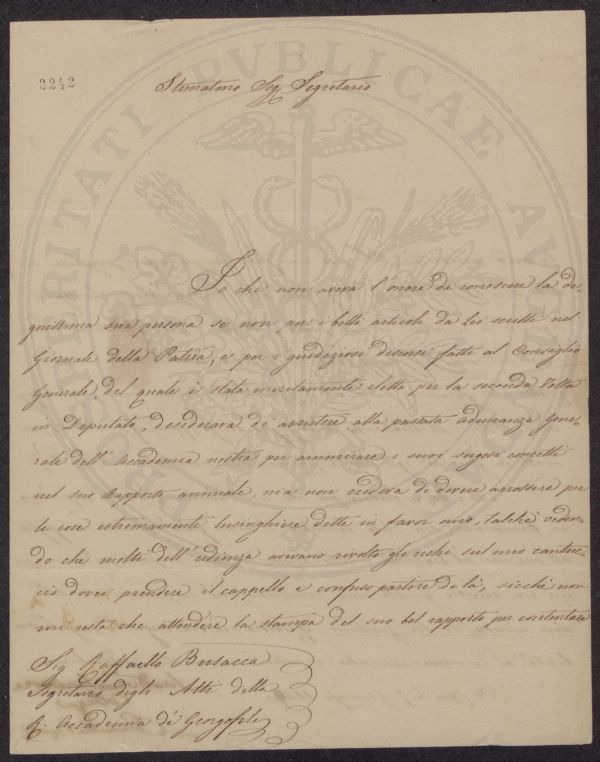 2242
Stimatmo Sig Segretario
PROSPERITATI PVBLICAE AVGENDAE
Io che non aveva l'onore di conoscere la de-
gnissima sua persona se non per i belli articoli da lei scritti nel
Giornale della Patria, e per i giudiziosi discorsi fatti al Consiglio
Generale, del quale è stata meritamente eletto per la seconda Volta
in Deputato, desiderava di assistere alla passata adunanza Gene-
rale dell' Accademia nostra per ammirare i suoi sugosi concetti
nel suo Rapporto annuale, ma non credeva di dovere arrossire per
le cose estremamente lusinghiere dette in favor mio, talchè veden-
do che molti dell' udienza avevano rivolto gli occhi sul mio cantuc-
cio dovei prendere il cappello e confuso partire di là, sicchè non
mi resta che attendere la stampa del suo bel rapporto per contentare
Sig Raffaello Busacca
Segretario degli Atti della
R. Accademia de' Georgofili